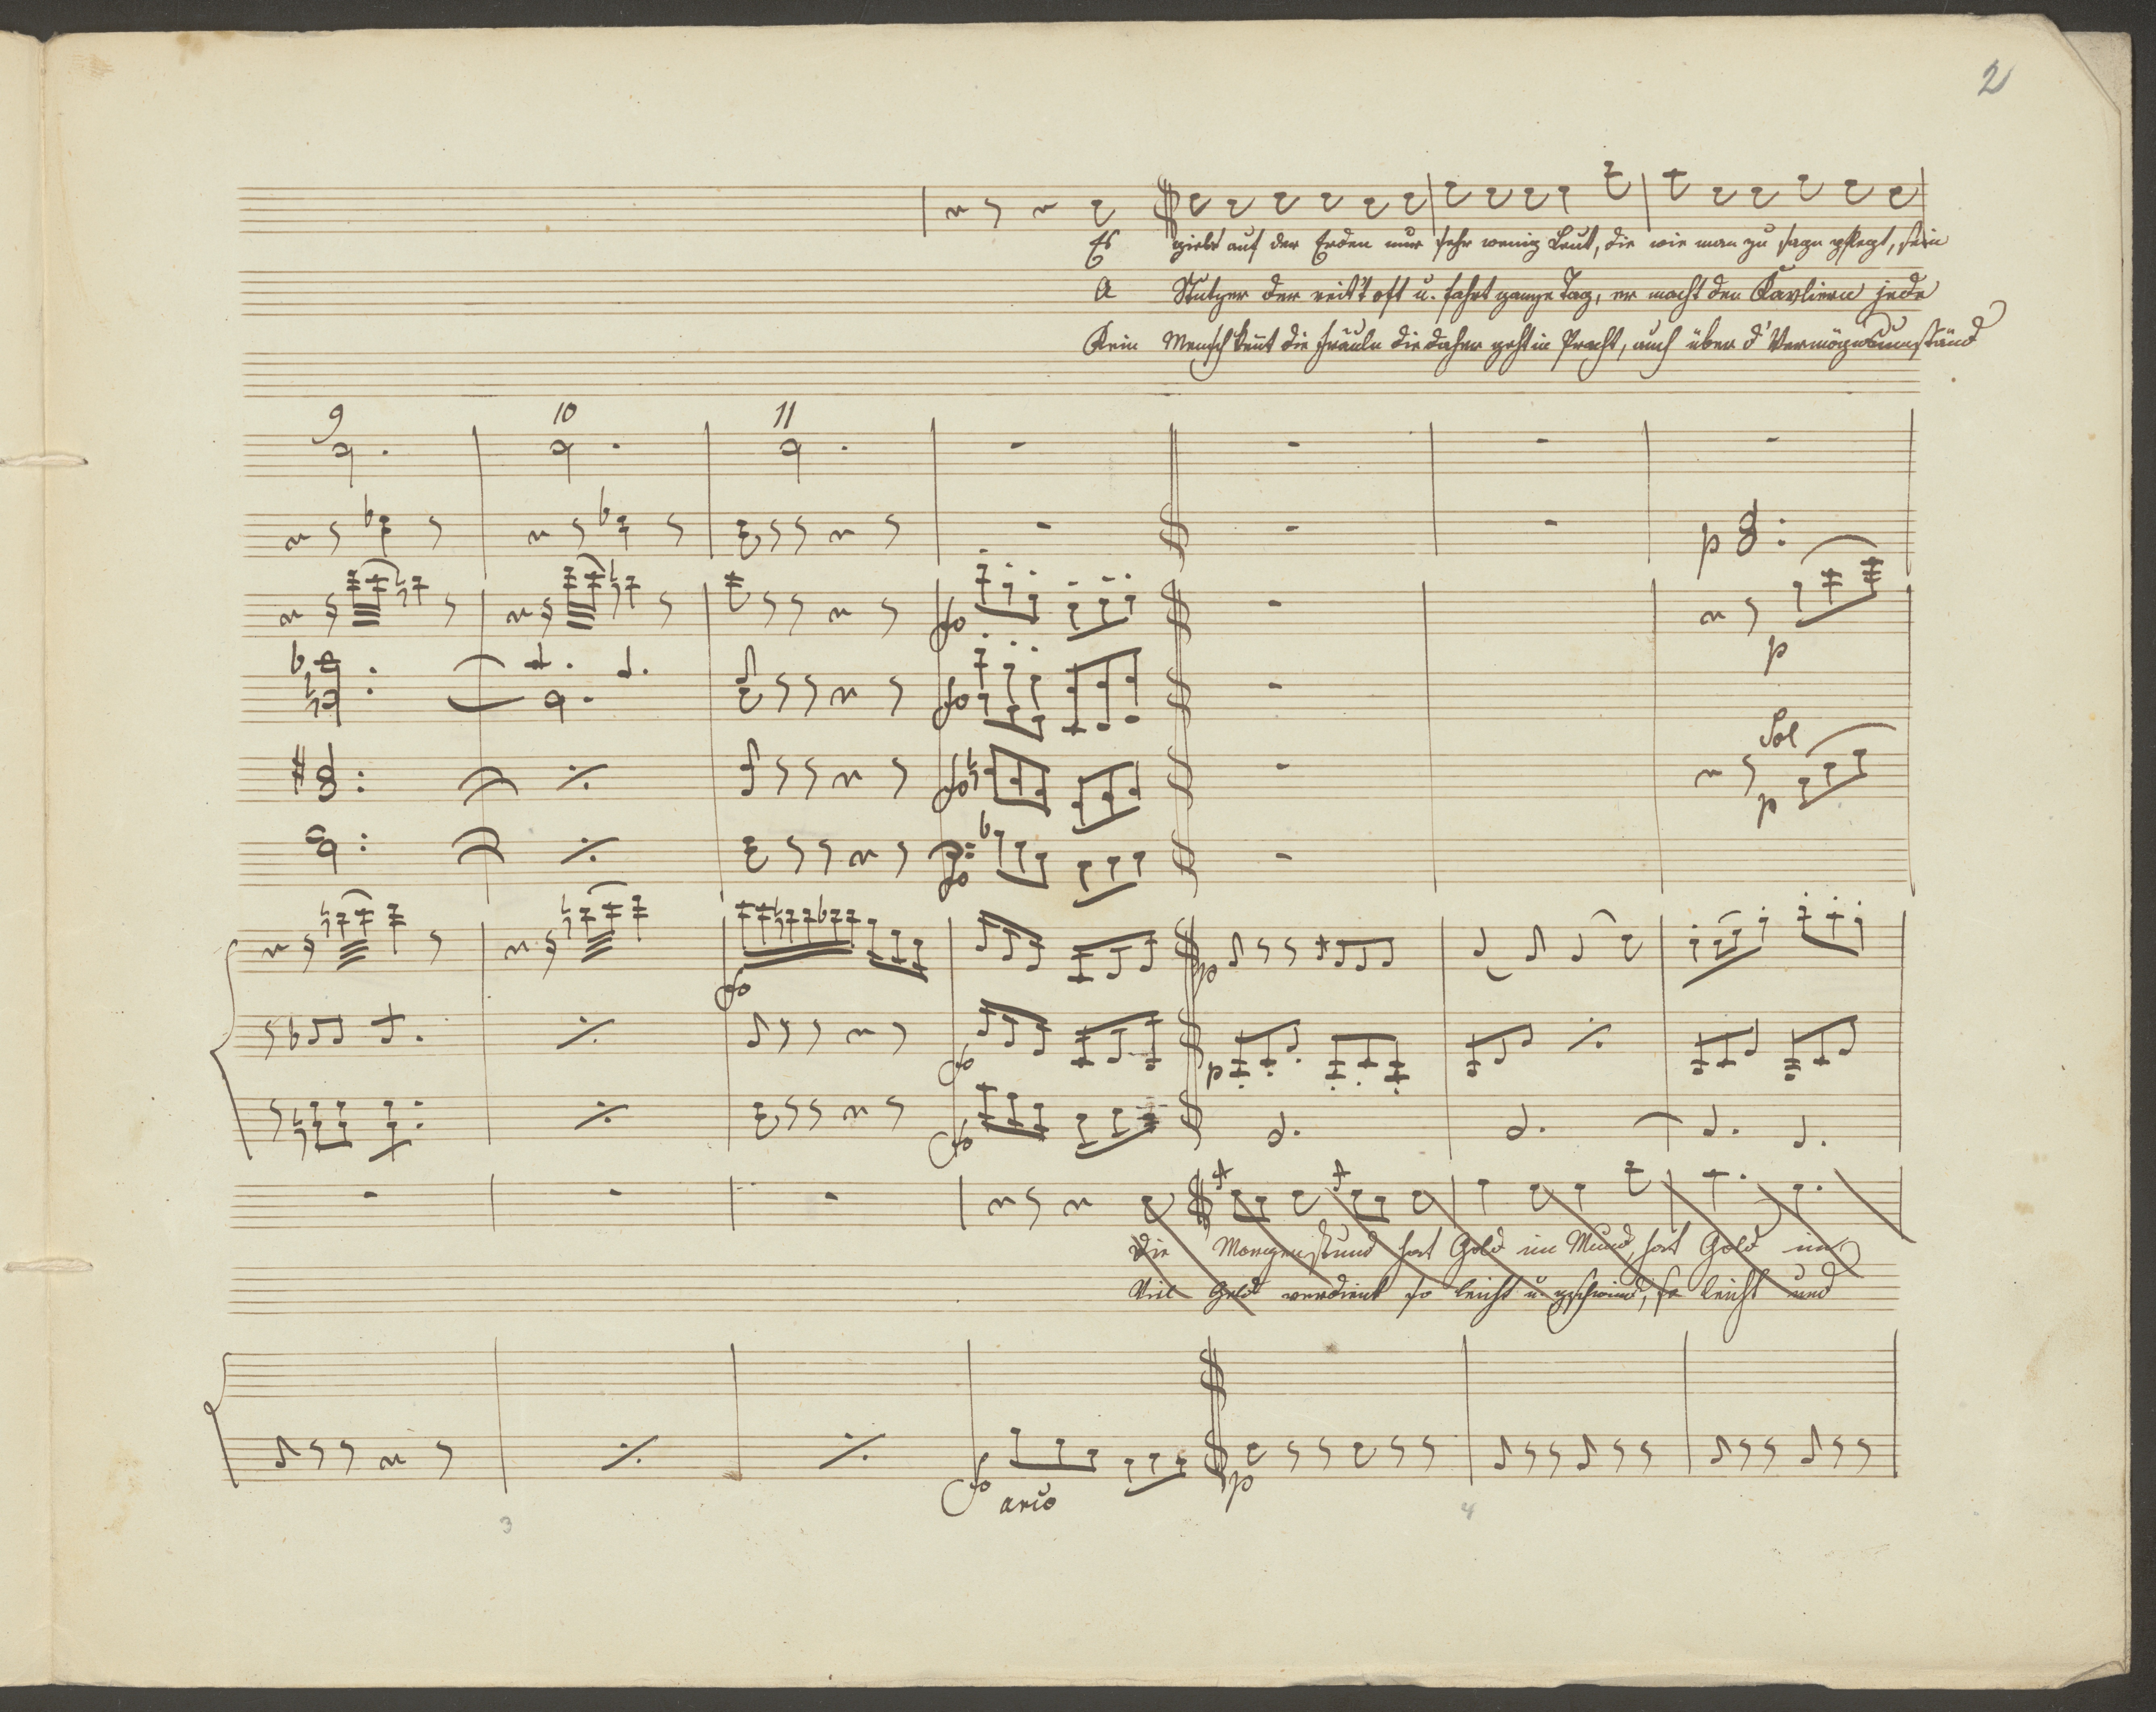 2
Es giebt auf der Erden nur sehr wenig Leut, die wie man zu sagn pflegt, sein
A Stutzer der reit't oft u. fahrt ganze Tag, er macht den Kavliern jede
Kein Mensch kent die Fräuln die daher geht in Pracht, auch über d' Vermögensumständ
9 10 11
p
fo p
fo Sol
fo p
fo
fo p
fo p
fo
Die Morgenstund hat Gold im Mund, hat Gold im
Viel Geld verdient so leicht u. gschwind, so leicht und
fo arco p
3 4